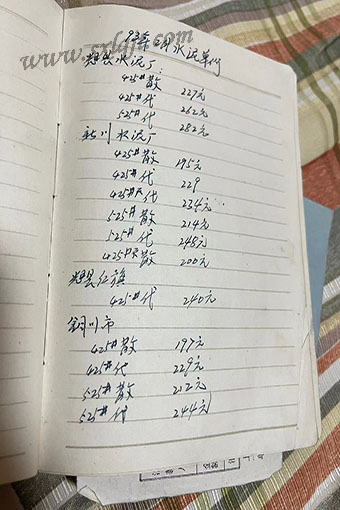 www.sxlqjf.com
水泥单价
水泥厂:
425#散 227元
425#代 262元
525#代 282元
水泥厂
425#散 195元
425#代 229
425# 代 234元
525#散 214元
525#代 248元
425# 散 200元
红旗
425#代 240元
铜川市
425#散 197元
425#代 229元
525#散 212元
525#代 244元